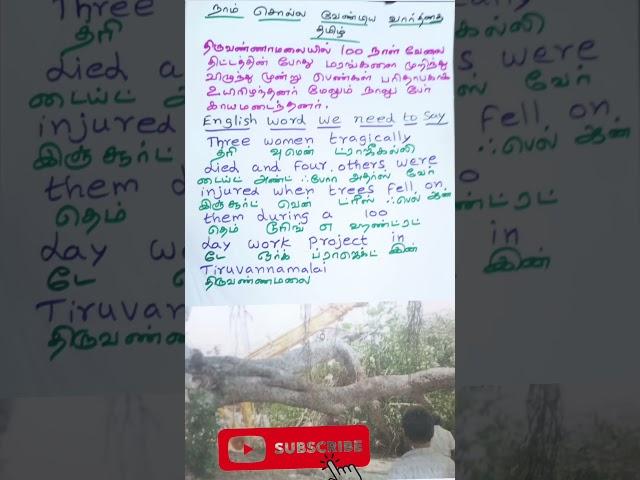 நாம் சொல்ல வேண்டிய வார்த்தை
தமிழ்
திருவண்ணாமலையில் 100 நாள் வேலை
திட்டத்தின் போது மரங்களை முறிந்து
விழுந்து மூன்று பெண்கள் பரிதாபமாக
உயிரிழந்தனர் மேலும் நாலு பேர்
காயமடைந்தனர்.
English word we need to say
Three women tragically
தரி வுமென் ட்ராஜீகல்லி
died and four others were
டைய்ட் அண்ட் ஃபோர அதர்ஸ் வேர்
injured when trees fell on
இஞ்சூர்ட் வென் ட்ரீஸ் ஃபெல் ஆன்
them during a 100
தெம் டூரிங் எ ஹண்ட்ரட்
day work project in
டே ஒர்க் ப்ராஜெக்ட் இன்
Tiruvannamalai
திருவண்ணமலை
SUBSCRIBE